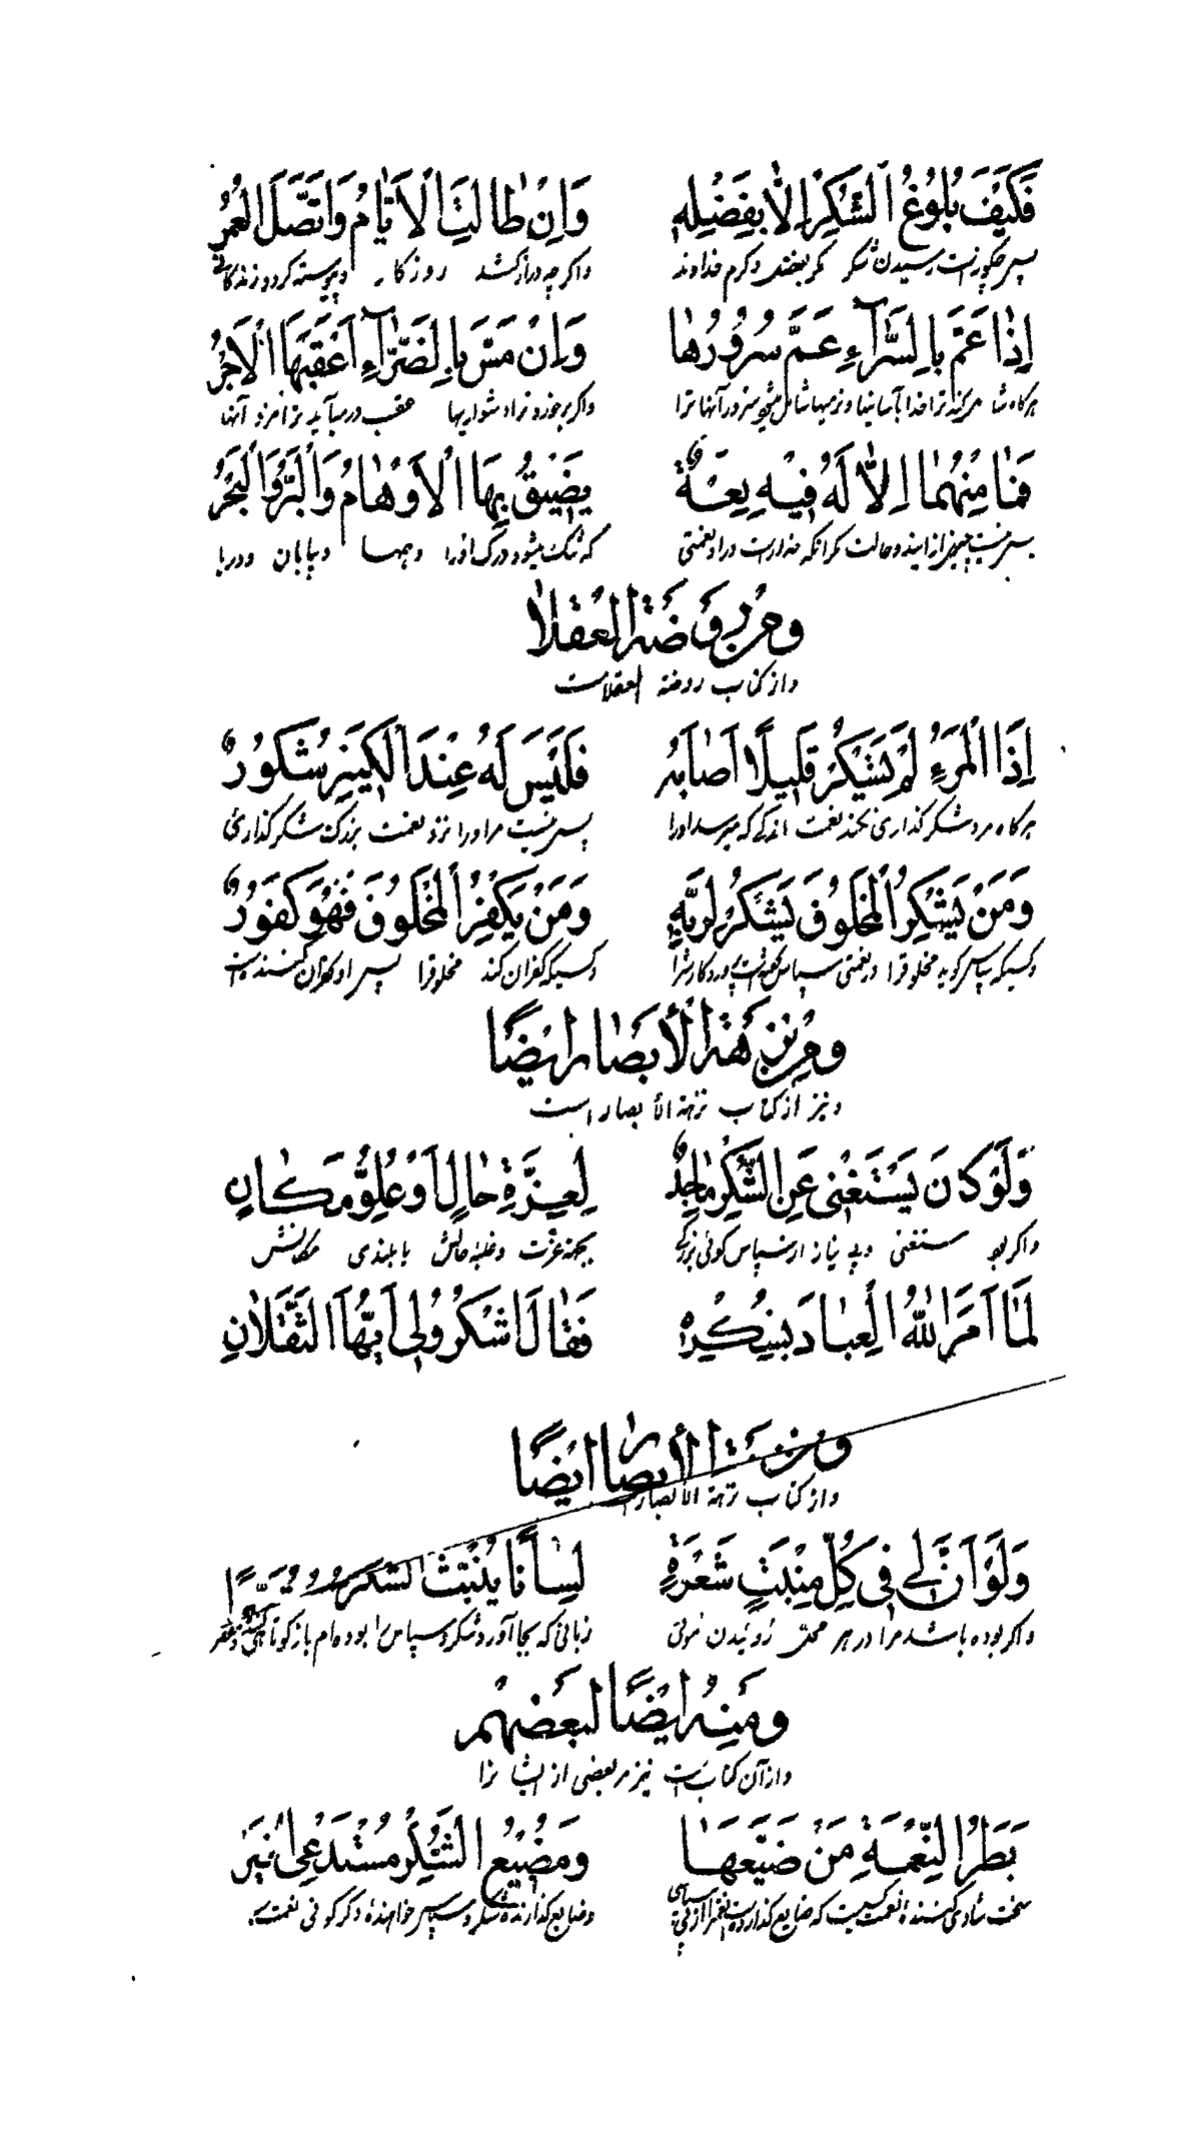 فَكَيْفَ بُلُوغُ الشُّكْرِ اِلّٰا بِفَضْلِهِ وَاِنْ طٰالَتِ الْاَيّٰامُ وَاتَّصَلَ الْعُمْرُ
پس چگونه است رسیدن شکر مگر بفضل و کرم خداوند واگرچه دراز کشد روزگار و پیوسته گردد زندگانی
اِذٰا عَمَّ بِالسَّرّٰآءِ عَمَّ سُرُورُهٰا وَاِنْ مَسَّ بِالضَّرّٰآءِ اَعْقَبَهَا الْاَجْرُ
هرگاه شامل کند ترا خدا بآسانیها و نرمیها شامل میشود سرور آنها ترا واگر برخورد تراه شواریها عقب درمیآید ترا مزد آنها
فَمٰا مِنْهُمٰا اِلّٰا لَهُ فِيْهِ نِعْمَةٌ يَضِيْقُ بِهَا الْاَوْهٰامُ وَالْبَرُّ وَالْبَحْرُ
پس نیست چیزی از ایندو حالت مگر آنکه خداراست در او نعمتی که تنگ میشود درک اورا وهمها و بیابان و دریا
وَمِنْ رَوْضَةِ الْعُقَلاٰ
واز کتاب روضة العقلاست
اِذَا الْمَرْءُ لَمْ يَشْكُرْ قَلِيلًا اَصٰابَهُ فَلَيْسَ لَهُ عِنْدَ الْكَثِيْرِ شُكُورٌ
هرگاه مرد شکر گذاری نکند نعمت اندکی که میرسد اورا پس نیست مر اورا نزد نعمت بزرگ شکر گذاری
وَمَنْ يَشْكُرِ الْمَخْلُوقَ يَشْكُرُ لِرَبِّهِ وَمَنْ يَكْفُرِ الْمَخْلُوقَ فَهُوَ كَفُورٌ
وکسیکه سپاس گوید مخلوقرا در نعمتی سپاس پروردگارش را وکسیکه کفران کند مخلوقرا پس او کفران کننده است
وَمِنْ نُزْهَةِ الْأَبْصٰارِ اَيْضًا
ونیز از کتاب نزهة الأبصار است
وَلَوْ كٰانَ يَسْتَغْنِي عَنِ الشُّكْرِ مٰاجِدٌ لِعِزَّةِ حٰالٍ اَوْ عُلُوِّ مَكٰانٍ
واگر بود مستغنی و بی نیاز از سپاس گوئی بزرگی بجهة عزّت و غلبه حالش یا بلندی مکانش
لَمٰا اَمَرَ اللّٰهُ الْعِبٰادَ بِشُكْرِهِ فَقٰالَ اشْكُرُوْلِي اَيُّهَا الثَّقَلاٰنِ
وَمِنْ نُزْهَةِ الْأَبْصٰارِ اَيْضًا
واز کتاب نزهة الأبصار
وَلَوْ اَنَّ لِي فِي كُلِّ مَنْبَتِ شَعْرَةٍ لِسٰانًا يُثْبِتُ الشُّكْرَ
واگر بوده باشد مرا در هر محل روئیدن موئی زبانی که بجا آورد شکر و سپاس بوده ام باز کوتاهی
وَمِنْهُ اَيْضًا لِبَعْضِهِمْ
واز آن کتاب است نیز مر بعضی از ایشانرا
بَطَرُ النِّعْمَةِ مَنْ ضَيَّعَهٰا وَمُضِيْعُ الشُّكْرِ مُسْتَدْعِى
سخت شادی کننده نعمت کسیست که ضایع گذارد وضایع گذارنده شکر و سپس خواهنده دگرگونی نعمت